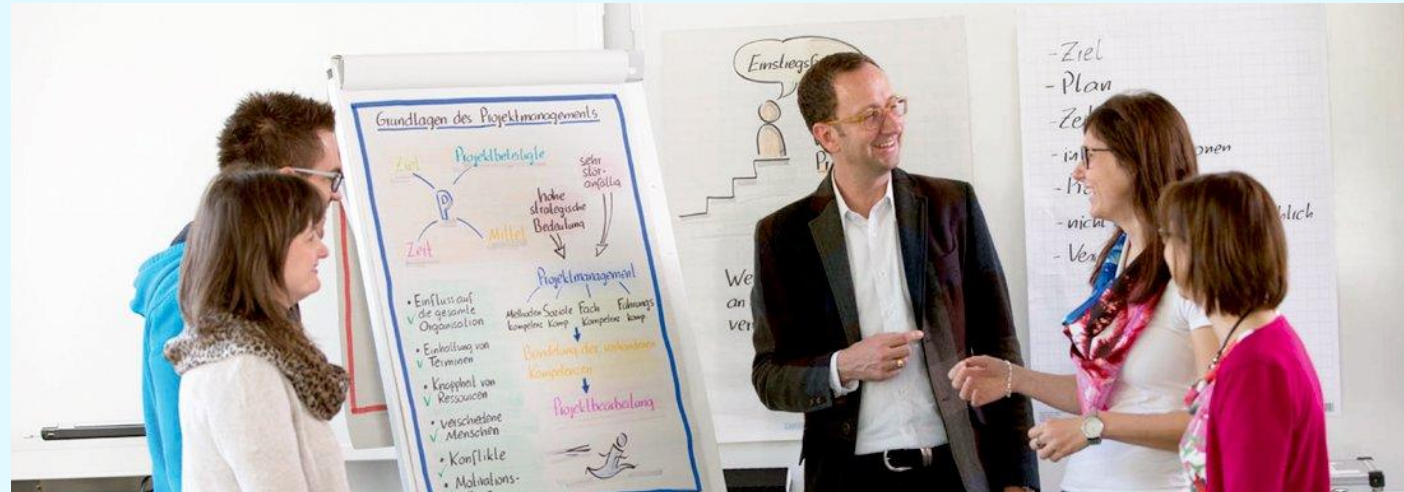 Grundlagen des Projektmanagements
Ziel
Projektbeteiligte
P
Zeit
Mittel
hohe
strategische
Bedeutung
sehr
stör-
anfällig
Projektmanagement
Methoden Soziale Fach Führungs
kompetenz komp Kompetenz komp
Bündelung der vorhandenen
Kompetenzen
Projektbearbeitung
• Einfluss auf
✓ die gesamte
Organisation
• Einhaltung von
✓ Terminen
• Knappheit von
✓ Ressourcen
• verschiedene
✓ Menschen
• Konflikte
• Motivations-
We
an
ver
- Ziel
- Plan
- nich